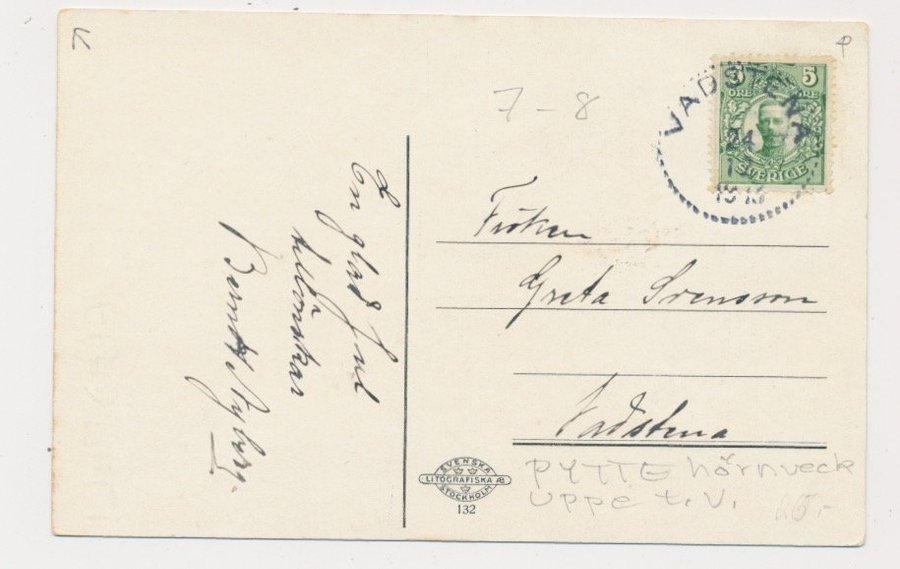 7 - 8
5
ÖRE ÖRE
SVERIGE
VADSTENA
24
En glad Jul
tillönskar
Berndt Nyberg.
Fröken
Greta Svensson
Vadstena
SVENSKA
LITOGRAFISKA AB
STOCKHOLM
132
PYTTE hörnveck
uppe t.v.